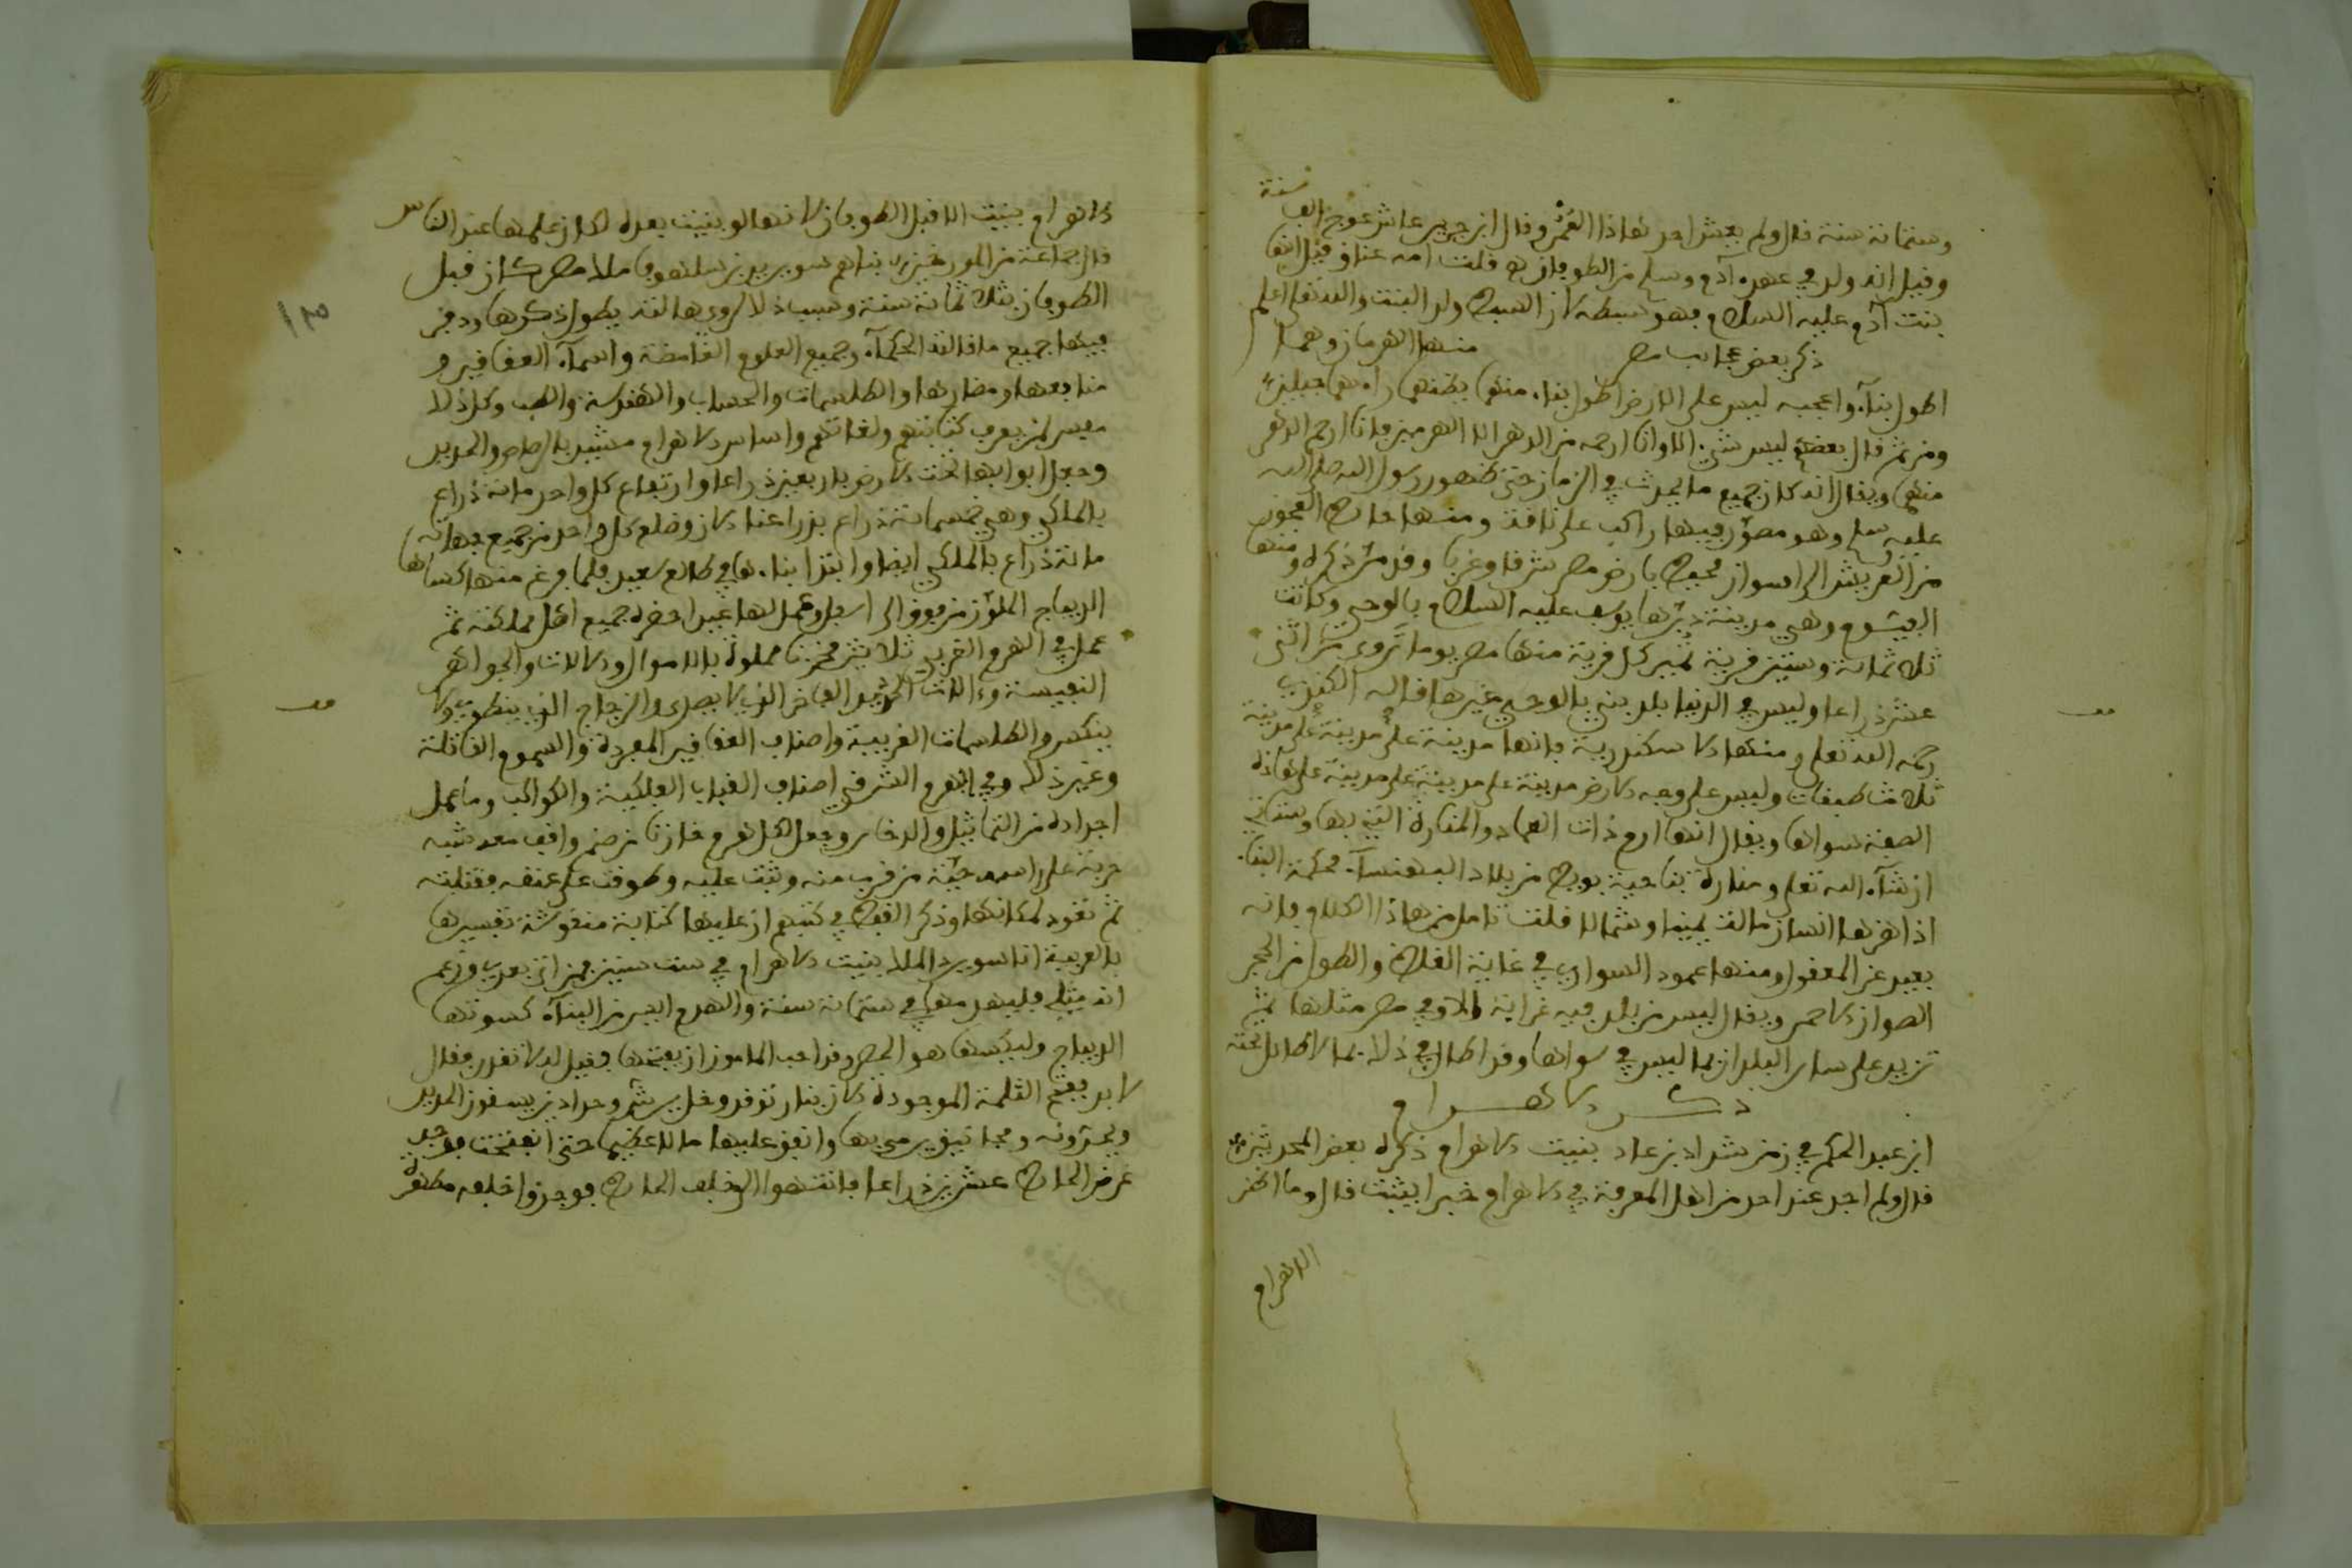 سنة
وستمائة سنة قال ولم يعش احد هذا العُمُر وقال ابن جرير عاش عوج الف
وقيل انه ولد في عهد آدم وسلم من الطوفان قلت امه عناق وقيل انها
بنت آدم عليه السلام فهو سبطه لان السبط ولد البنت والله تعلى اعلم
ذكر بعض عجائب مصر منها الهرمان وهما
اطول بناء واعجبه ليس على الارض اطول بناء منهما يظنهما راءيهما جبلين
ومن ثم قال بعضهم ليس شيء الا وانا ارحمه من الدهر الا الهرمين فانا ارحم الدهر
منهما ويقال انه كان جميع ما يحدث في الزمان حتى ظهور رسول الله صلى الله
عليه وسلم وهو مصوّر فيها راكب على ناقة ومنها حائط العجوز
من العريش الى اسوان محيط بارض مصر شرقا وغربا وقد مرّ ذكره ومنها
الفيوم وهي مدينة دبّرها يوسف عليه السلام بالوحي وكانت
ثلاثمائة وستين قرية تمير كل قرية منها مصر يوما تروى من اثني
عشر ذراعا وليس في الدنيا بلد بني بالوحي غيرها قاله الكندي
رحمه الله تعلى ومنها الاسكندرية فانها مدينة على مدينة على مدينة
ثلاث طبقات وليس على وجه الارض مدينة على مدينة على مدينة على هذه
الصفة سواها ويقال انها ارم ذات العماد والمنارة التي بها وستاتي
ان شاء الله تعلى ومنارة بناحية بويط من بلاد البهنسا محكمة البناء
اذا هزها انسان مالت يمينا وشمالا قلت تامل هذا الكلام فانه
بعيد عن المعقول ومنها عمود السواري في غاية الغلظ والطول من الحجر
الصوان الاحمر ويقال ليس من بلد فيه غرائب الا وفي مصر مثلها ثم
تزيد على سائر البلدان بما ليس في سواها وقد اطال في ذلك بما لا طائل تحته
ذكر الاهرام
ابن عبد الحكم في زمن شداد بن عاد بنيت الاهرام ذكره بعض المحدثين
قال ولم اجد عند احد من اهل المعرفة في الاهرام خبرا يثبت قال وما اظن
الاهرام
الاهرام بنيت الا قبل الطوفان لانها لو بنيت بعده لكان علمها عند الناس
قال جماعة من المورخين بناهم سوريد بن سلهوق ملك مصر كان قبل
الطوفان بثلاثمائة سنة وسبب ذلك رؤيا هالته يطول ذكرها ودفن
فيها جميع ما قالته الحكماء وجميع العلوم الغامضة واسماء العقاقير و
منافعها ومضارها والطلسمات والحساب والهندسة والطب وكل ذلك
مفسر لمن يعرف كتابتهم ولغاتهم واساس الاهرام مشيد بالرصاص والحديد
وجعل ابوابها تحت الارض باربعين ذراعا وارتفاع كل واحد مائة ذراع
بالملكي وهي خمسمائة ذراع بذراعنا الان وضلع كل واحد من جميع جهاته
مائة ذراع بالملكي ايضا وابتدا بناءها في طالع سعيد فلما فرغ منها كساها
الديباج الملون من فوق الى اسفل وعمل لها عيدا حضره جميع اهل مملكته ثم
عمل في الهرم الغربي ثلاثين مخزنا مملوة بالاموال والالات والجواهر
النفيسة وءالات الحديد الفاخر الذي لا يصدى والزجاج الذي ينطوي ولا
ينكسر والطلسمات الغريبة واصناف العقاقير المفردة والسموم القاتلة
وغير ذلك وفي الهرم الشرقي اصناف القباب الفلكية والكواكب وما عمل
اجداده من التماثيل والدخن وجعل لكل هرم خازنا من صنم واقف معه شبه
حربة على راسه حيّة من قرب منه وثبت عليه وطوقت على عنقه فقتلته
ثم تعود لمكانها وذكر القبط في كتبهم ان عليها كتابة منقوشة تفسيرها
بالعربية انا سوريد الملك بنيت الاهرام في ست سنين فمن اتى بعدي وزعم
انه مثلي فليهدمها في ستمائة سنة والهدم ايسر من البناء كسوتها
الديباج وليكسها هو الحصر وقد احب المامون ان يفتحها فقيل له لا تقدر فقال
لا بد ففتح الثلمة الموجودة الان بنار توقد وخل يرش وحدادين يسقون الحديد
ويحدّونه ومجانيق يرمي بها وانفق عليها مالا عظيما حتى انفتحت فوجد
عرض الحائط عشرين ذراعا فانتهوا الى خلف الحائط فوجدوا خلفه مطهرة